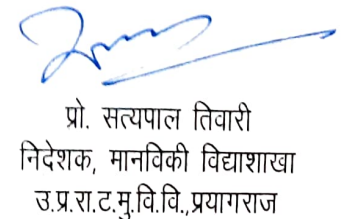 प्रो. सत्यपाल तिवारी
निदेशक, मानविकी विद्याशाखा
उ.प्र.रा.ट.मु.वि.वि.,प्रयागराज